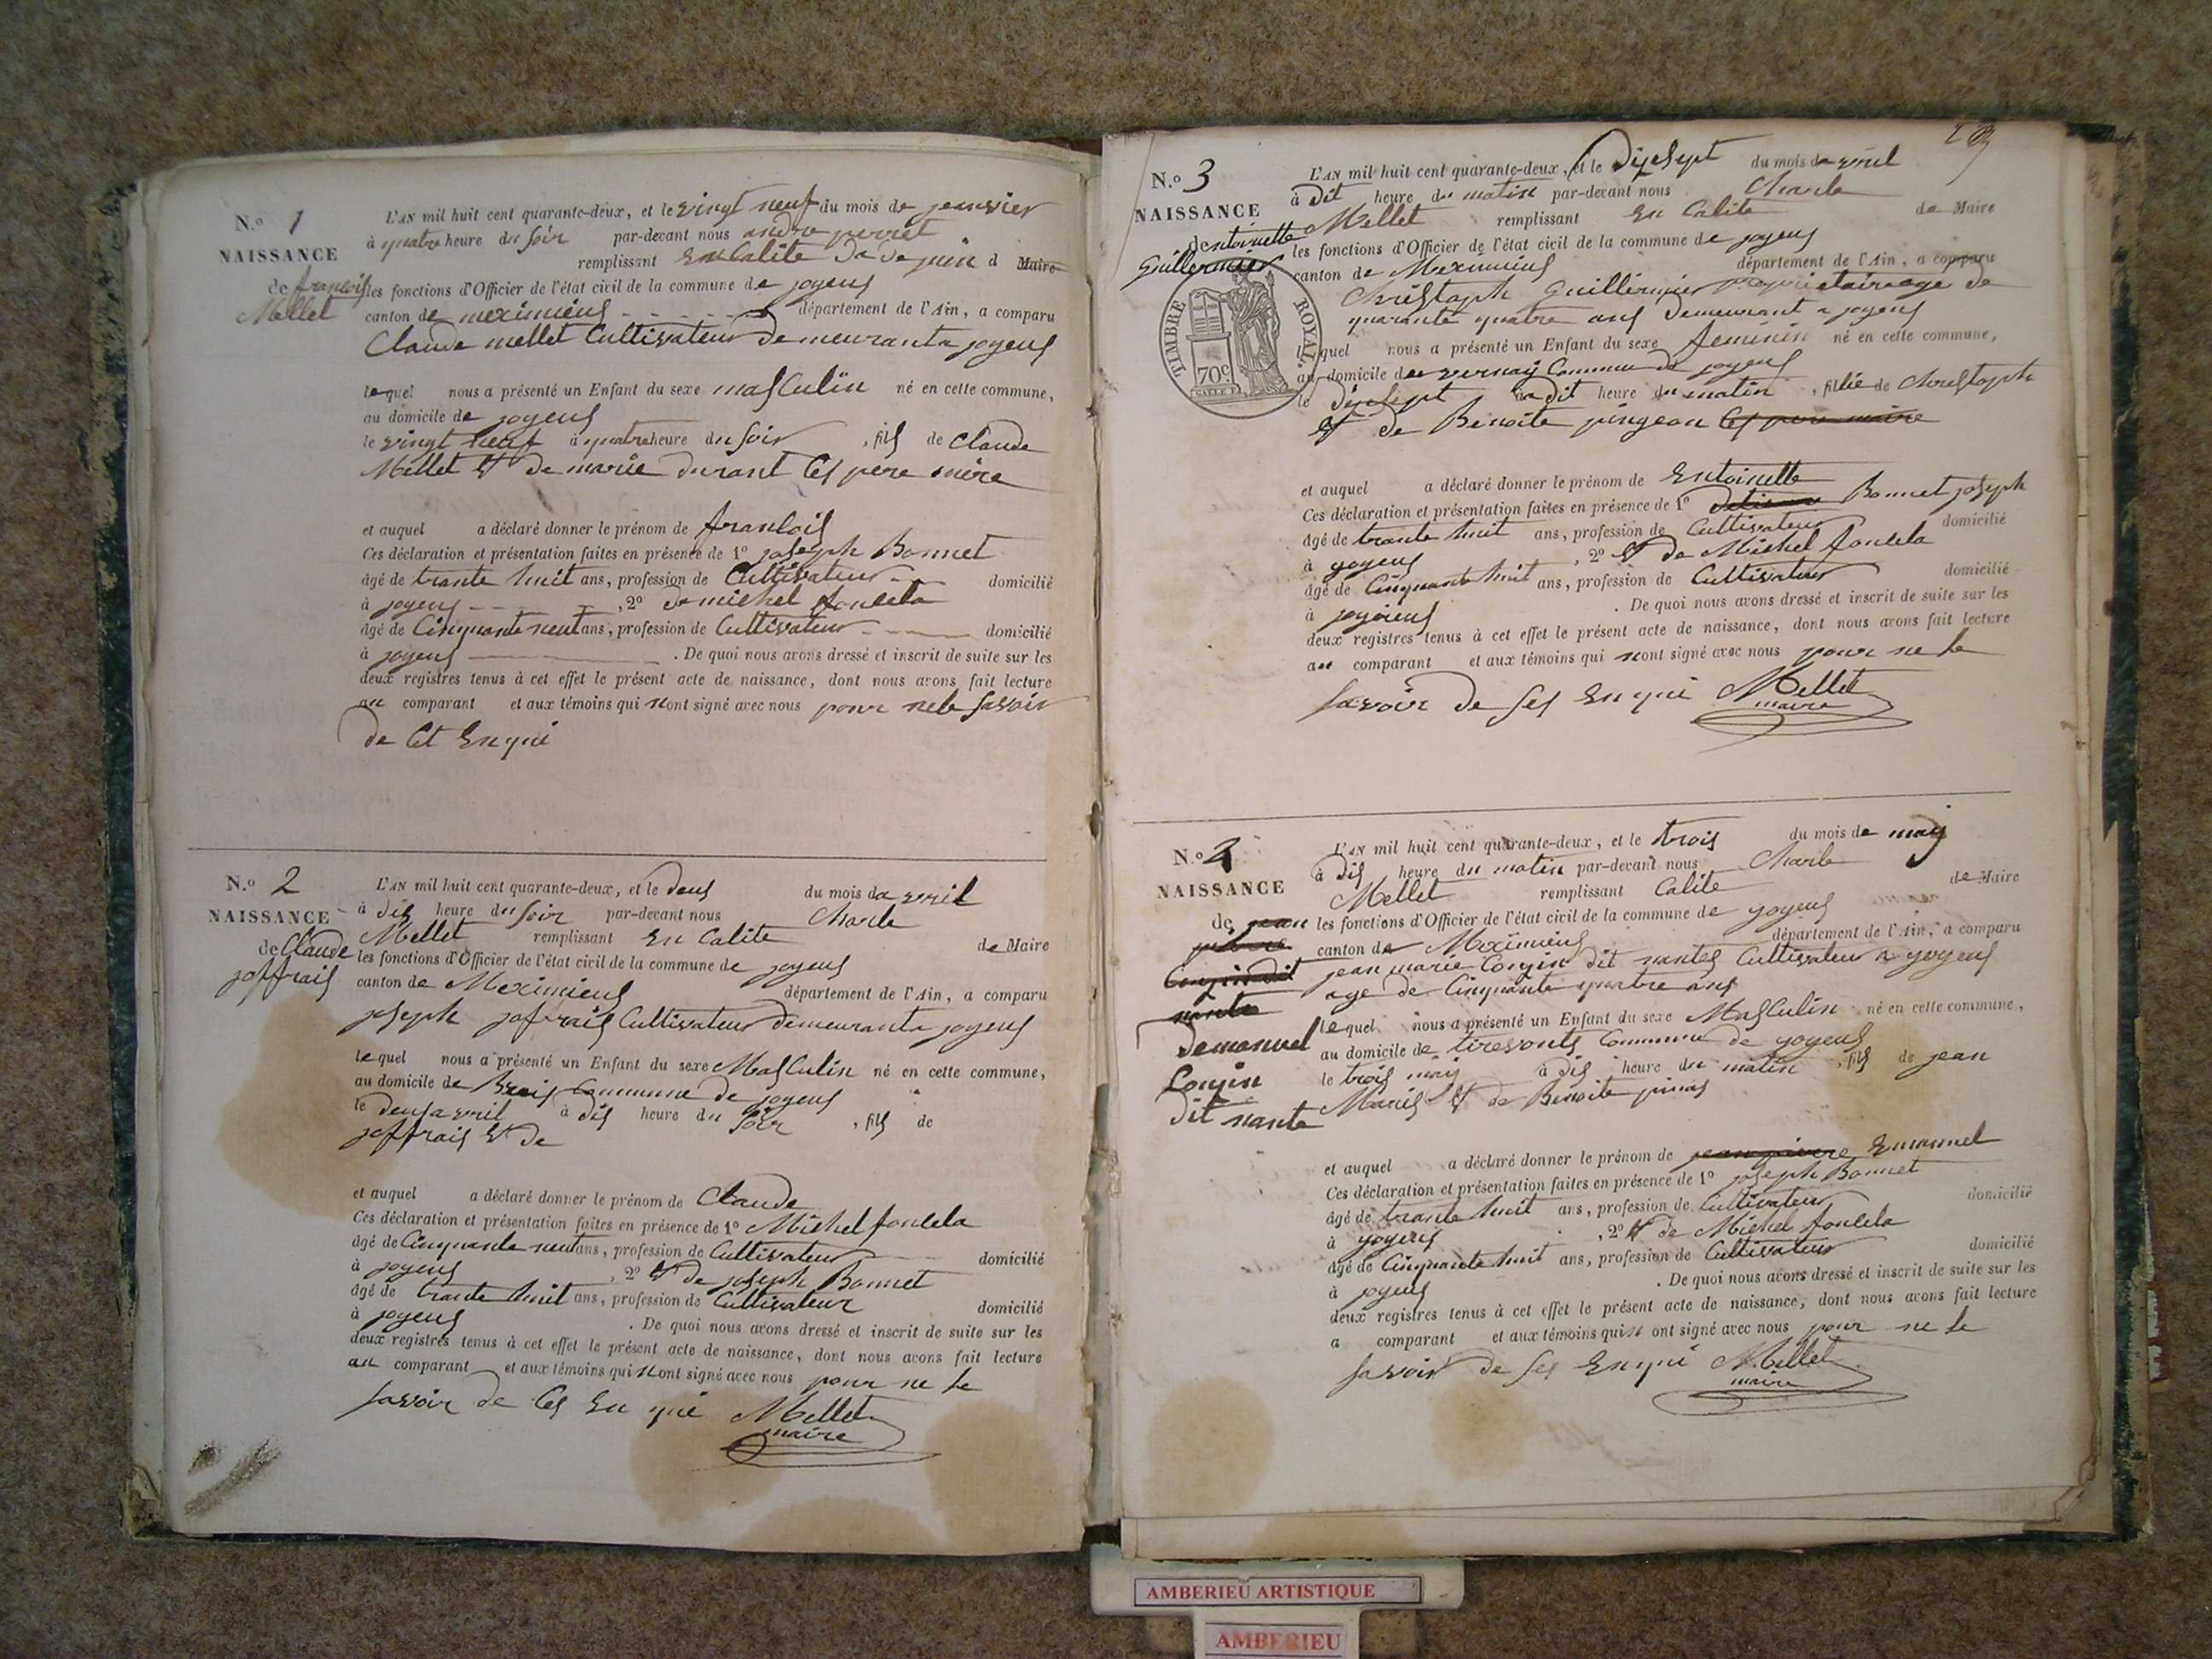 N.o 1
NAISSANCE
de francois
Mellet
L'AN mil huit cent quarante-deux, et le vingt neuf du mois de jeanvier
à quatre heure du soir par-devant nous andre perret
remplissant En Calite da de juin d Maire
les fonctions d'Officier de l'état civil de la commune de joyeus
canton de meximieus département de l'Ain, a comparu
Claude mellet Cultivateur demeurant a joyeus
lequel nous a présenté un Enfant du sexe masculin né en cette commune,
au domicile de joyeus
le vingt neuf à quatre heure du soir, fils de Claude
Mellet Et de marie durant Ces pere mère
et auquel a déclaré donner le prénom de francois
Ces déclaration et présentation faites en présence de 1o joseph Bonnet
âgé de trante huit ans, profession de Cultivateur domicilié
à joyeus, 2o de michel foncela
âgé de Cinquante neuf ans, profession de Cultivateur domicilié
à joyeus. De quoi nous avons dressé et inscrit de suite sur les
deux registres tenus à cet effet le présent acte de naissance, dont nous avons fait lecture
au comparant et aux témoins qui nont signé avec nous pour ne le savoir
de Cet Enqui
N.o 2
NAISSANCE
de Claude
joffrais
L'AN mil huit cent quarante-deux, et le deus du mois davril
à dis heure du soir par-devant nous Charle
Mellet remplissant En Calite de Maire
les fonctions d'Officier de l'état civil de la commune de joyeus
canton de Meximieus département de l'Ain, a comparu
joseph joffrais Cultivateur demeurant a joyeus
lequel nous a présenté un Enfant du sexe Masculin né en cette commune,
au domicile de Commune de joyeus
le deus avril à dis heure du soir, fils de
joffrais Et de
et auquel a déclaré donner le prénom de Claude
Ces déclaration et présentation faites en présence de 1o Michel foncela
âgé de Cinquante neuf ans, profession de Cultivateur domicilié
à joyeus, 2o Et de joseph Bonnet
âgé de trante huit ans, profession de Cultivateur domicilié
à joyeus. De quoi nous avons dressé et inscrit de suite sur les
deux registres tenus à cet effet le présent acte de naissance, dont nous avons fait lecture
au comparant et aux témoins qui nont signé avec nous pour ne le
savoir de Ces En qui Mellet
maire
N.o 3
NAISSANCE
dentoinette
Guillermier
TIMBRE ROYAL
70c
L'AN mil huit cent quarante-deux, et le dixsept du mois davril
à dit heure du matin par-devant nous Charle
Mellet remplissant En Calite de Maire
les fonctions d'Officier de l'état civil de la commune de joyeus
canton de Meximieus département de l'Ain, a comparu
Christoph Guillermier propriétaire age de
quarante quatre ans demeurant a joyeus
lequel nous a présenté un Enfant du sexe feminin né en cette commune,
au domicile de vernay Commune de joyeus
le dixsept à dit heure du matin, fillie de Christoph
Et de Benoite pingeon Ces pere maire
et auquel a déclaré donner le prénom de Entoinette
Ces déclaration et présentation faites en présence de 1o Bonnet joseph
âgé de trante huit ans, profession de Cultivateur domicilié
à joyeus, 2o Et de Michel foncela
âgé de Cinquante huit ans, profession de Cultivateur domicilié
à joyeus. De quoi nous avons dressé et inscrit de suite sur les
deux registres tenus à cet effet le présent acte de naissance, dont nous avons fait lecture
au comparant et aux témoins qui nont signé avec nous pour ne le
savoir de Ses En qui Mellet
maire
N.o 4
NAISSANCE
de jean
pierre
Congin dit
nante
demanuel
Congin
dit nante
L'AN mil huit cent quarante-deux, et le trois du mois de may
à dis heure du matin par-devant nous Charle
Mellet remplissant Calite de Maire
les fonctions d'Officier de l'état civil de la commune de joyeus
canton de Meximieus département de l'Ain, a comparu
jean marie Congin dit nantes Cultivateur a joyeus
age de Cinquante quatre ans
lequel nous a présenté un Enfant du sexe Masculin né en cette commune,
au domicile de tirevonts Commune de joyeus
le trois may à dis heure du matin, fils de jean
Maris Et de Benoite pinas
et auquel a déclaré donner le prénom de jean pierre Emanuel
Ces déclaration et présentation faites en présence de 1o joseph Bonnet
âgé de trante huit ans, profession de Cultivateur domicilié
à joyeus, 2o Et de Michel foncela
âgé de Cinquante huit ans, profession de Cultivateur domicilié
à joyeus. De quoi nous avons dressé et inscrit de suite sur les
deux registres tenus à cet effet le présent acte de naissance, dont nous avons fait lecture
a comparant et aux témoins qui n ont signé avec nous pour ne le
savoir de Ses En qui Mellet
maire
AMBERIEU ARTISTIQUE
AMBERIEU